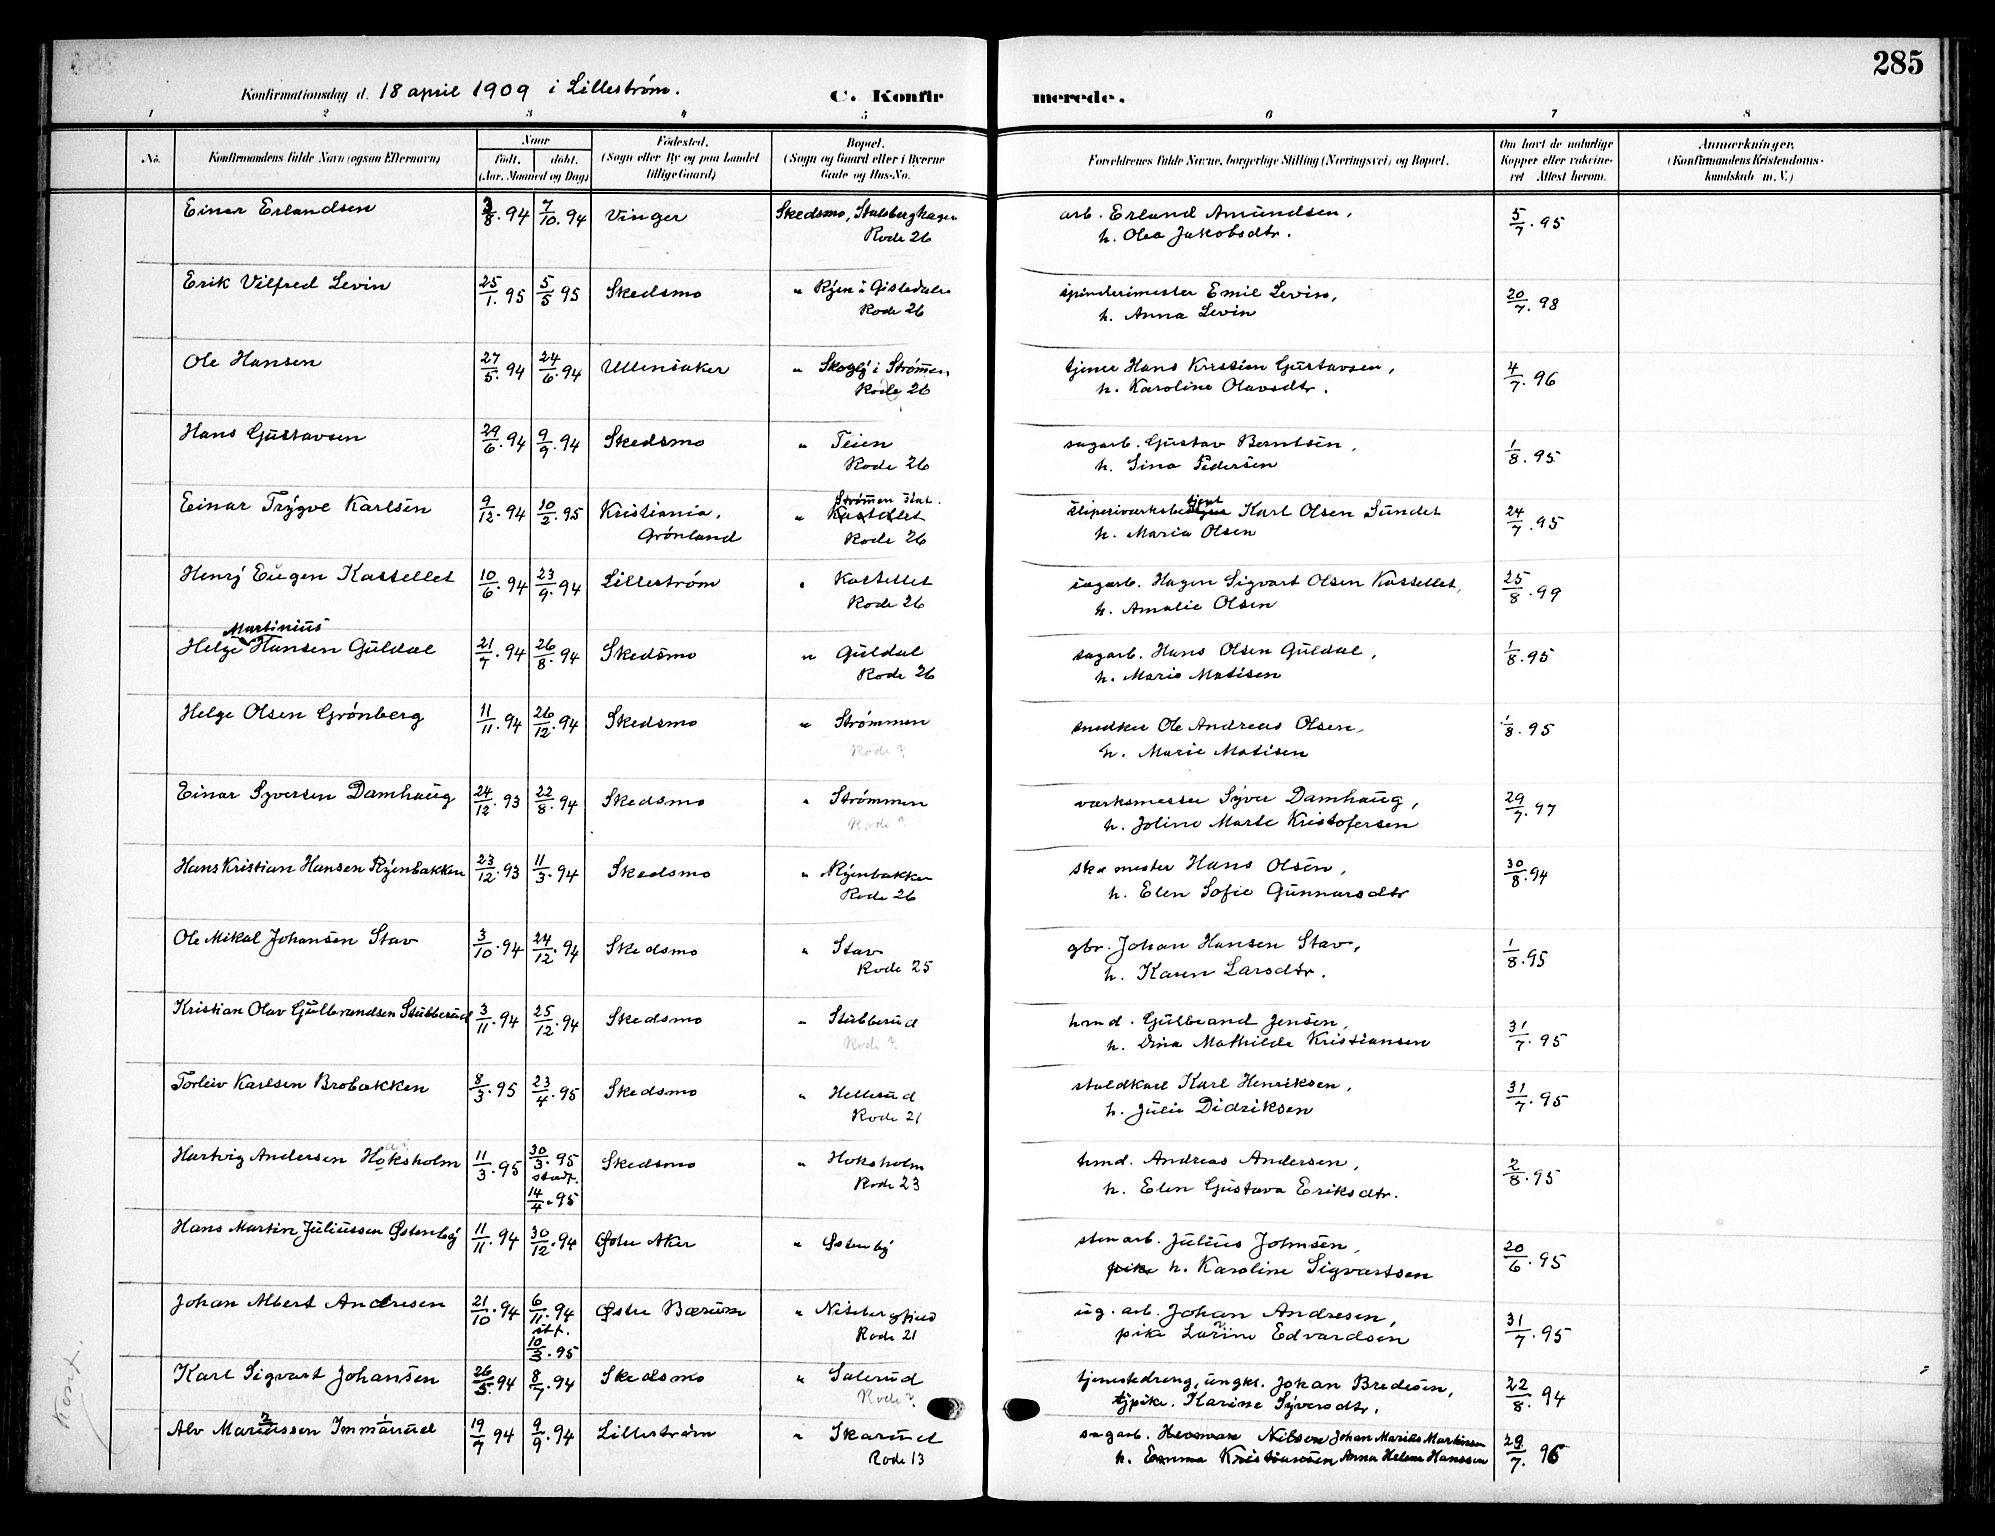 285
Konfirmationsdag d. 18 april 1909 i Lillestrøm.
C. Konfir merede.
1 2 3 4 5 6 7 8
No. Konfirmandens fulde Navn (ogsaa Efternavn) Naar født. døbt. (Aar, Maaned og Dag) Fødested. (Sogn eller By og paa Landet tillige Gaard) Bopæl. (Sogn og Gaard eller i Byerne Gade og Hus-No. Forældrenes fulde Navne, borgerlige Stilling (Næringsvei) og Bopæl. Om havt de naturlige Kopper eller vakcineret Attest herom. Anmærkninger. (Konfirmandens Kristendomskundskab m. V.)
Einar Erlandsen 3/8. 94 7/10. 94 Vinger Skedsmo, Stalsberghagen arb. Erland Amundsen, 5/7. 95
Rode 26 h. Olea Jakobsdtr.
Erik Vilfred Levin 25/1. 95 5/5 95 Skedsmo " Ryen i Gisledalen spinderimester Emil Levin, 20/7. 98
Rode 26 h. Anna Levin
Ole Hansen 27/5. 94 24/6. 94 Ullensaker " Skogly i Strømmen tjener Hans Kristian Gustavsen, 4/7. 96
Rode 26 h. Karoline Olavsdtr.
Hans Gustavsen 29/6. 94 9/9. 94 Skedsmo " Teien sagarb. Gustav Berntsen, 1/8. 95
Rode 26 h. Sina Pedersen
Einar Trygve Karlsen 9/12. 94 10/2. 95 Kristiania, Strømmen stat. " Kastellet sliperiverksbetjent Karl Olsen Sundet 24/7. 95
Grønland Rode 26 h. Maria Olsen
Henry Eugen Kastellet 10/6. 94 23/9. 94 Lillestrøm " Kastellet sagarb. Hagen Sigvart Olsen Kastellet, 25/8. 99
Rode 26 h. Amalie Olsen
Martinius
Helge Hansen Guldal 21/7. 94 26/8. 94 Skedsmo " Guldal sagarb. Hans Olsen Guldal, 1/8. 95
Rode 26 h. Marie Matisen
Helge Olsen Grønberg 11/11. 94 26/12. 94 Skedsmo " Strømmen snedker Ole Andreas Olsen, 1/8. 95
Rode ? h. Marie Matisen
Einar Syversen Damhaug 24/12 93 22/8. 94 Skedsmo " Strømmen værksmester Syver Damhaug, 29/7. 97
Rode ? h. Joline Marte Kristofersen
Hans Kristian Hansen Ryenbakken 23/12. 93 11/3. 94 Skedsmo " Ryenbakken mester Hans Olsen, 30/8. 94
Rode 26 h. Elen Sofie Gunnarsdtr
Ole Mikal Johansen Stav 3/10. 94 24/12. 94 Skedsmo " Stav gbr. Johan Hansen Stav, 1/8. 95
Rode 25 h. Karen Larsdtr.
Kristian Olav Gulbrandsen Stubberud 3/11. 94 25/12. 94 Skedsmo " Stubberud hmd. Gulbrand Jensen, 31/7. 95
Rode ? h. Dina Mathilde Kristiansen
Torleiv Karlsen Brobakken 8/3. 95 23/4. 95 Skedsmo " Hellerud staldkarl Karl Henriksen, 31/7. 95
Rode 21 h. Julie Didriksen
Hartvig Andersen Hoksholm 11/3. 95 30/3. 95 Skedsmo " Hoksholm hmd. Andreas Andersen, 2/8. 95
stadf. 14/4. 95 Rode 23 h. Elen Gustava Eriksdtr.
Hans Martin Juliussen Østenby 11/11. 94 30/12. 94 Østre Aker " Østenby stenarb. Julius Johnsen, 20/6. 95
pike h. Karoline Sigvartsen
Johan Albert Andresen 21/10. 94 6/11. 94 Østre Bærum " Nitebergfjeld ug. arb. Johan Andresen, 31/7. 95
stf. 10/3. 95 Rode 21 pike Larine Edvardsen
Karl Sigvart Johansen 26/5 94 8/7. 94 Skedsmo " Salerud tjenestedreng, ungk. Johan Bredesen, 22/8. 94
Rode ? tjpike. Karine Syversdtr.
Alv Mariussen Immarud 19/7 94 9/9. 94 Lillestrøm " Skarud sagarb. Herman Nilsen Johan Marius Martinsen 29/7. 96
Rode 13 h. Emma Kristiansen Anna Helene Hanssen
Konf.